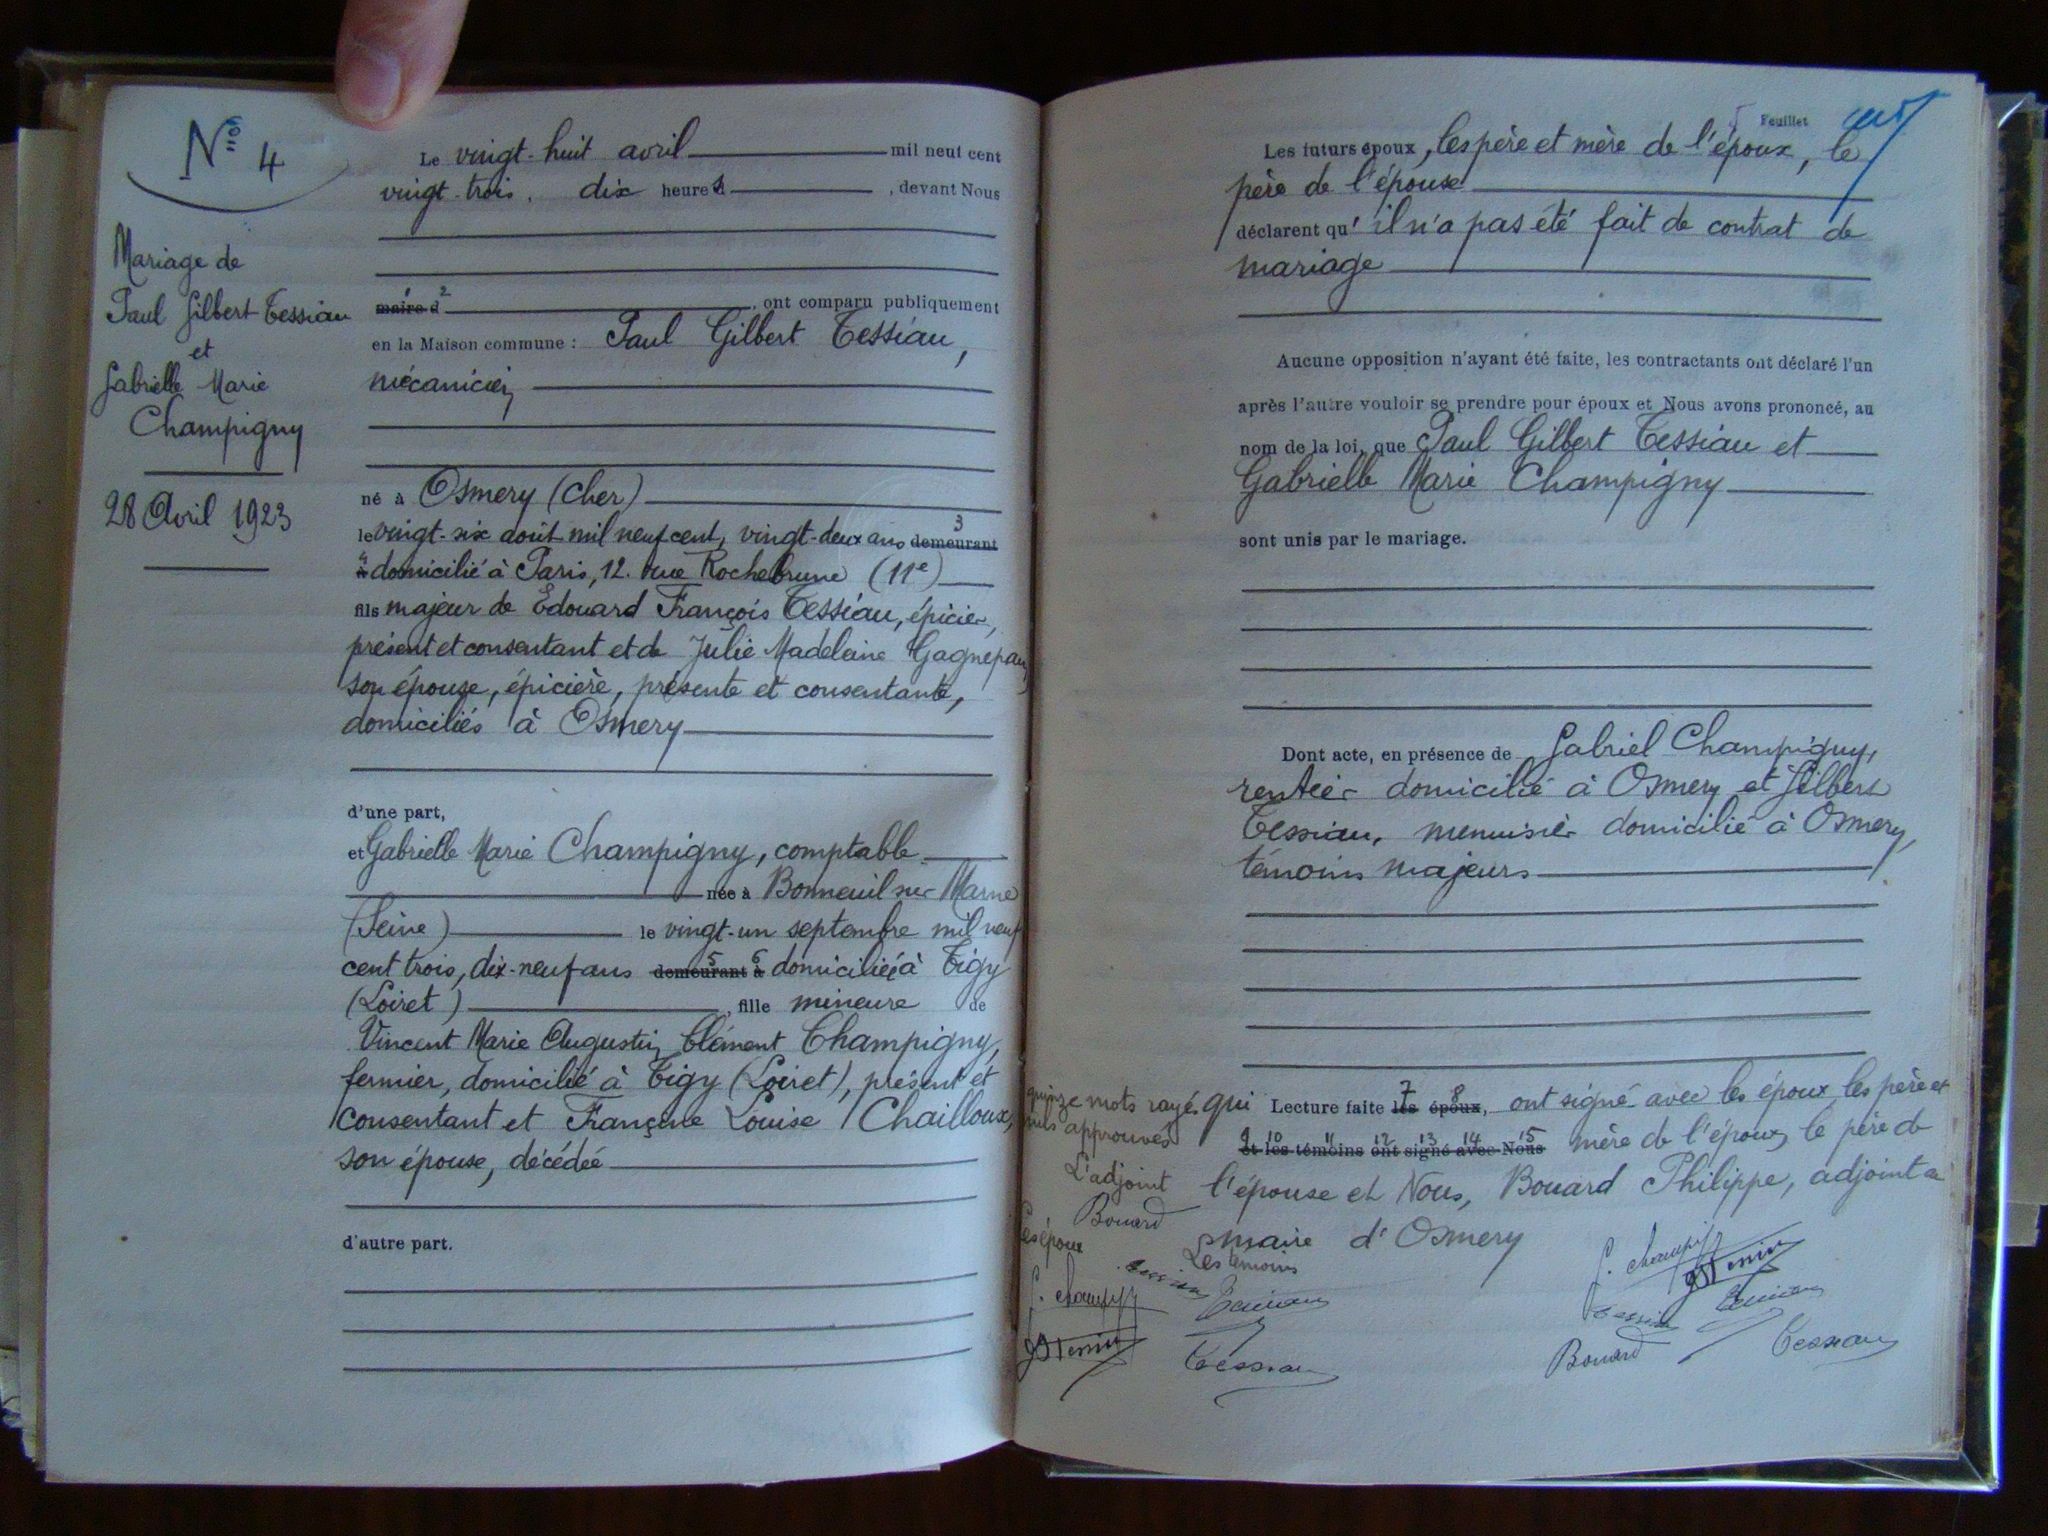 N° 4
Mariage de
Paul Gilbert Tessiau
et
Gabrielle Marie
Champigny
28 Avril 1923
Le vingt-huit avril mil neuf cent
vingt-trois, dix heures, devant Nous
maire d 2, ont comparu publiquement
en la Maison commune : Paul Gilbert Tessiau,
mécanicien
né à Osmery (Cher)
le vingt-six août mil neuf cent, vingt-deux ans demeurant 3
à 4 domicilié à Paris, 12. rue Rochebrune (11e)
fils majeur de Edouard François Tessiau, épicier,
présent et consentant et de Julie Madeleine Gagnepain
son épouse, épicière, présente et consentante,
domiciliés à Osmery
d'une part,
et Gabrielle Marie Champigny, comptable
née à Bonneuil sur Marne
(Seine) le vingt-un septembre mil neuf
cent trois, dix-neuf ans demeurant 5 à 6 domiciliée à Tigy
(Loiret), fille mineure de
Vincent Marie Augustin Clément Champigny,
fermier, domicilié à Tigy (Loiret), présent et
consentant et Françine Louise Chailloux,
son épouse, décédée
d'autre part.
Feuillet
Les futurs époux, les père et mère de l'époux, le
père de l'épouse
déclarent qu'il n'a pas été fait de contrat de
mariage
Aucune opposition n'ayant été faite, les contractants ont déclaré l'un
après l'autre vouloir se prendre pour époux et Nous avons prononcé, au
nom de la loi, que Paul Gilbert Tessiau et
Gabrielle Marie Champigny
sont unis par le mariage.
Dont acte, en présence de Gabriel Champigny,
rentier domicilié à Osmery et Gilbert
Tessiau, menuisier domicilié à Osmery,
témoins majeurs
quinze mots rayés
nuls approuvés
L'adjoint
Bouard
Les époux
qui Lecture faite les 7 époux 8, ont signé avec les époux les père et
et 9 les 10 témoins 11 ont 12 signé 13 avec 14 Nous 15 mère de l'époux, le père de
l'épouse et Nous, Bouard Philippe, adjoint au
maire d'Osmery
Les témoins
G. Champigny
Tessiau
Bouard
Tessiau